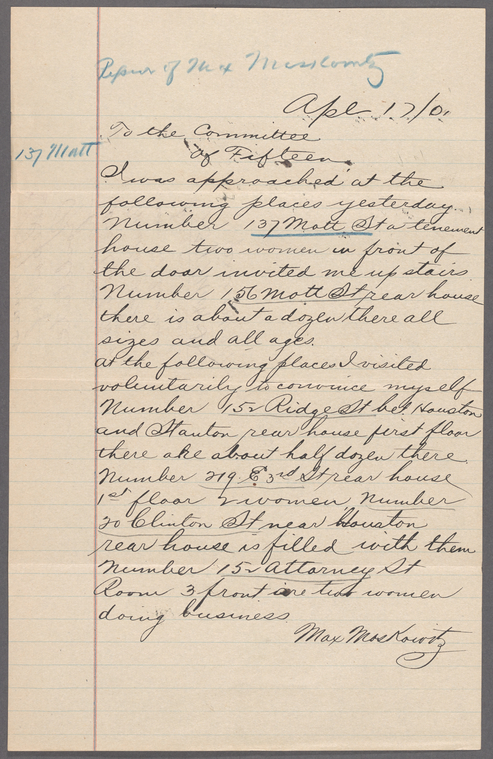 Report of Max Moskowitz
Apl 17/01
137 Mott
To the Committee
Of Fifteen
I was approached at the
following places yesterday
Number 137 Mott St a tenement
house two women in front of
the door invited me up stairs
Number 156 Mott St rear house
there is about a dozen there all
sizes and all ages.
at the following places I visited
voluntarily to convince myself
Number 152 Ridge St bet Houston
and Stanton rear house first floor
there are about half dozen there
Number 219 E 3rd St rear house
1st floor 2 women Number
20 Clinton St near Houston
rear house is filled with them
Number 152 Attorney St
Room 3 front are two women
doing business
Max Moskowitz